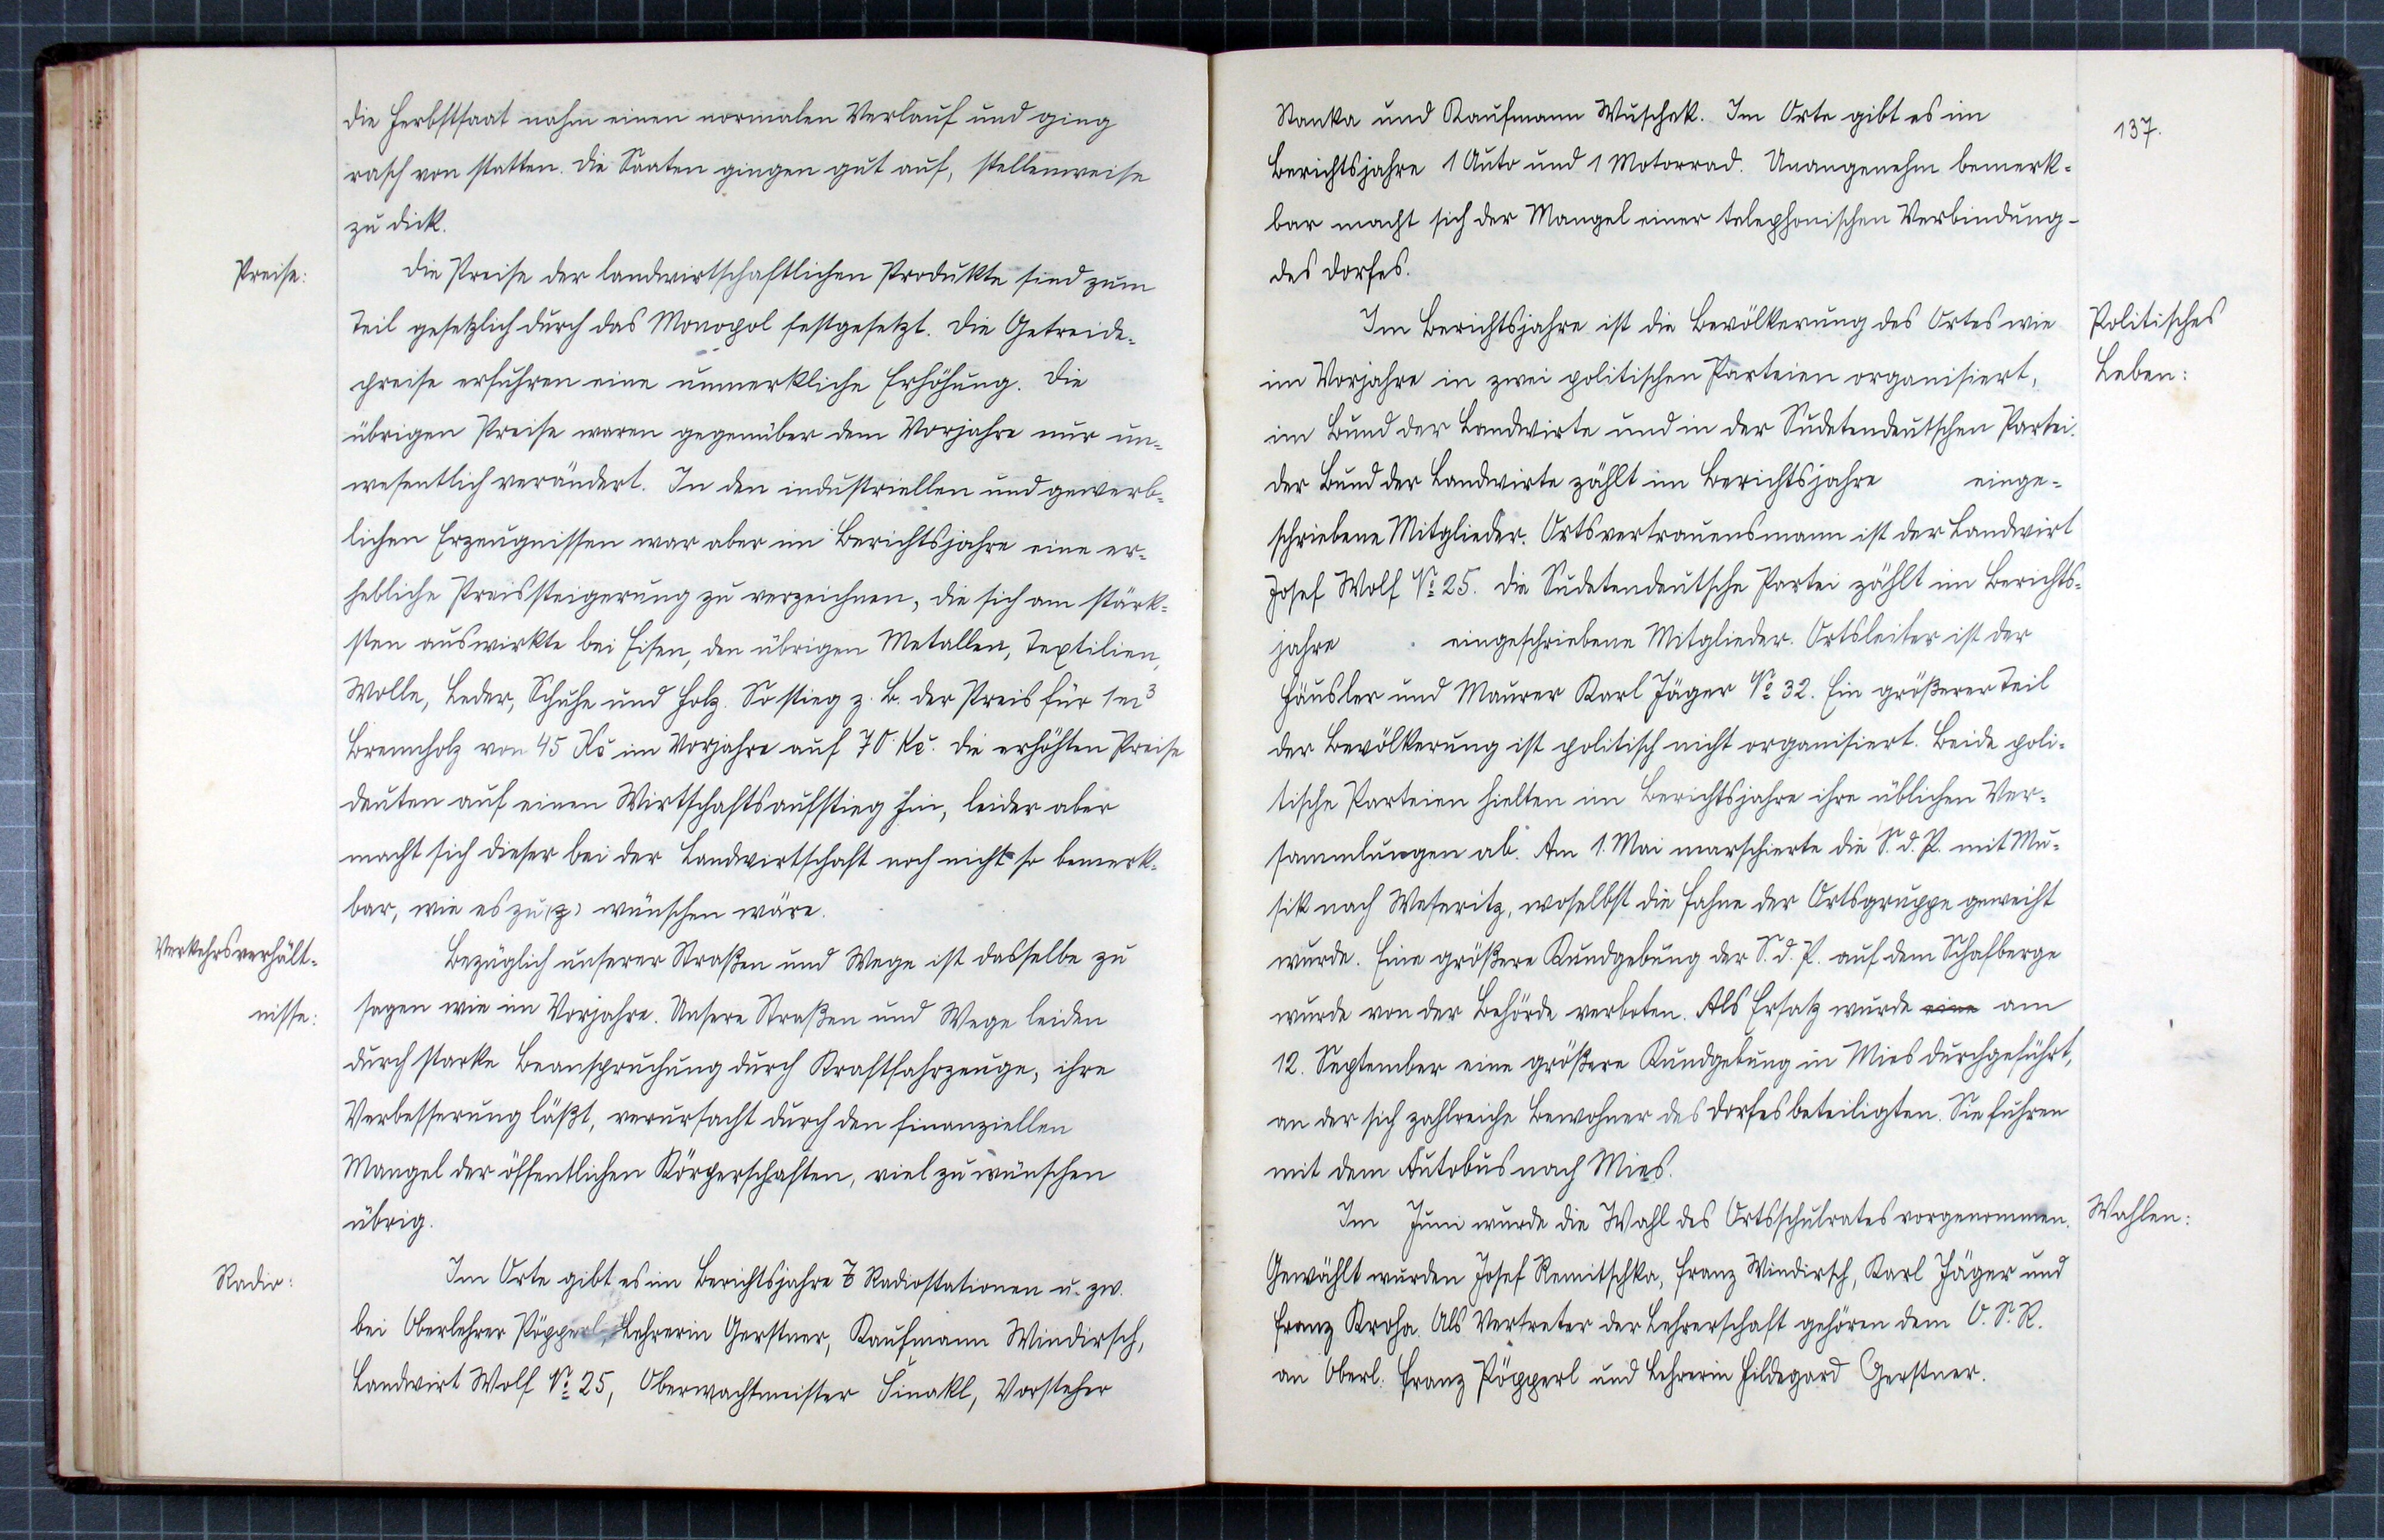 Die Herbstsaat nahm einen normalen Verlauf und ging
rasch von statten. Die Saaten gingen gut auf, stellenweise
zu dick.
Preise:
Die Preise der landwirtschaftlichen Produkte sind zum
Teil gesetzlich durch das Monopol festgesetzt. Die Getreide-
preise erfuhren eine unmerkliche Erhöhung. Die
übrigen Preise waren gegenüber dem Vorjahre nur un-
wesentlich verändert. In den industriellen und gewerb-
lichen Erzeugnissen war aber im Berichtsjahre eine er-
hebliche Preissteigerung zu verzeichnen, die sich am stärk-
sten auswirkte bei Eisen, den übrigen Metallen, Textilien,
Wolle, Leder, Schuhe und Holz. So stieg z. B. der Preis für 1 m³
Brennholz von 45 Kč im Vorjahre auf 70 Kč. Die erhöhten Preise
deuten auf einen Wirtschaftsaufstieg hin, leider aber
macht sich dieser bei der Landwirtschaft noch nicht so bemerk-
bar, wie es zu (z) wünschen wäre.
Verkehrsverhält-
nisse:
Bezüglich unserer Straßen und Wege ist dasselbe zu
sagen wie im Vorjahre. Unsere Straßen und Wege leiden
durch starke Beanspruchung durch Kraftfahrzeuge, ihre
Verbesserung läßt, verursacht durch den finanziellen
Mangel der öffentlichen Körperschaften, viel zu wünschen
übrig.
Radio:
Im Orte gibt es im Berichtsjahre 7 Radiostationen u. zw.
bei Oberlehrer Pöpperl, Lehrerin Gerstner, Kaufmann Windirsch,
Landwirt Wolf № 25, Oberwachtmeister Šinakl, Vorsteher
137.
Stanka und Kaufmann Wuschek. Im Orte gibt es im
Berichtsjahre 1 Auto und 1 Motorrad. Unangenehm bemerk-
bar macht sich der Mangel einer telephonischen Verbindung-
des Dorfes.
Politisches
Leben:
Im Berichtsjahre ist die Bevölkerung des Ortes wie
im Vorjahre in zwei politischen Parteien organisiert,
im Bund der Landwirte und in der Sudetendeutschen Partei.
Der Bund der Landwirte zählt im Berichtsjahre einge-
schriebene Mitglieder. Ortsvertrauensmann ist der Landwirt
Josef Wolf № 25. Die Sudetendeutsche Partei zählt im Berichts-
jahre eingeschriebene Mitglieder. Ortsleiter ist der
Häusler und Maurer Karl Jäger № 32. Ein größerer Teil
der Bevölkerung ist politisch nicht organisiert. Beide poli-
tische Parteien hielten im Berichtsjahre ihre üblichen Ver-
sammlungen ab. Am 1. Mai marschierte die S. d. P. mit Mu-
sik nach Weseritz, woselbst die Fahne der Ortsgruppe geweiht
wurde. Eine größere Kundgebung der S. d. P. auf dem Schafberge
wurde von der Behörde verboten. Als Ersatz wurde eine am
12. September eine größere Kundgebung in Mies durchgeführt,
an der sich zahlreiche Bewohner des Dorfes beteiligten. Sie fuhren
mit dem Autobus nach Mies.
Wahlen:
Im Juni wurde die Wahl des Ortsschulrates vorgenommen.
Gewählt wurden Josef Remitschka, Franz Windirsch, Karl Jäger und
Franz Kroha. Als Vertreter der Lehrerschaft gehören dem O. S. R.
an Oberl. Franz Pöpperl und Lehrerin Hildegard Gerstner.